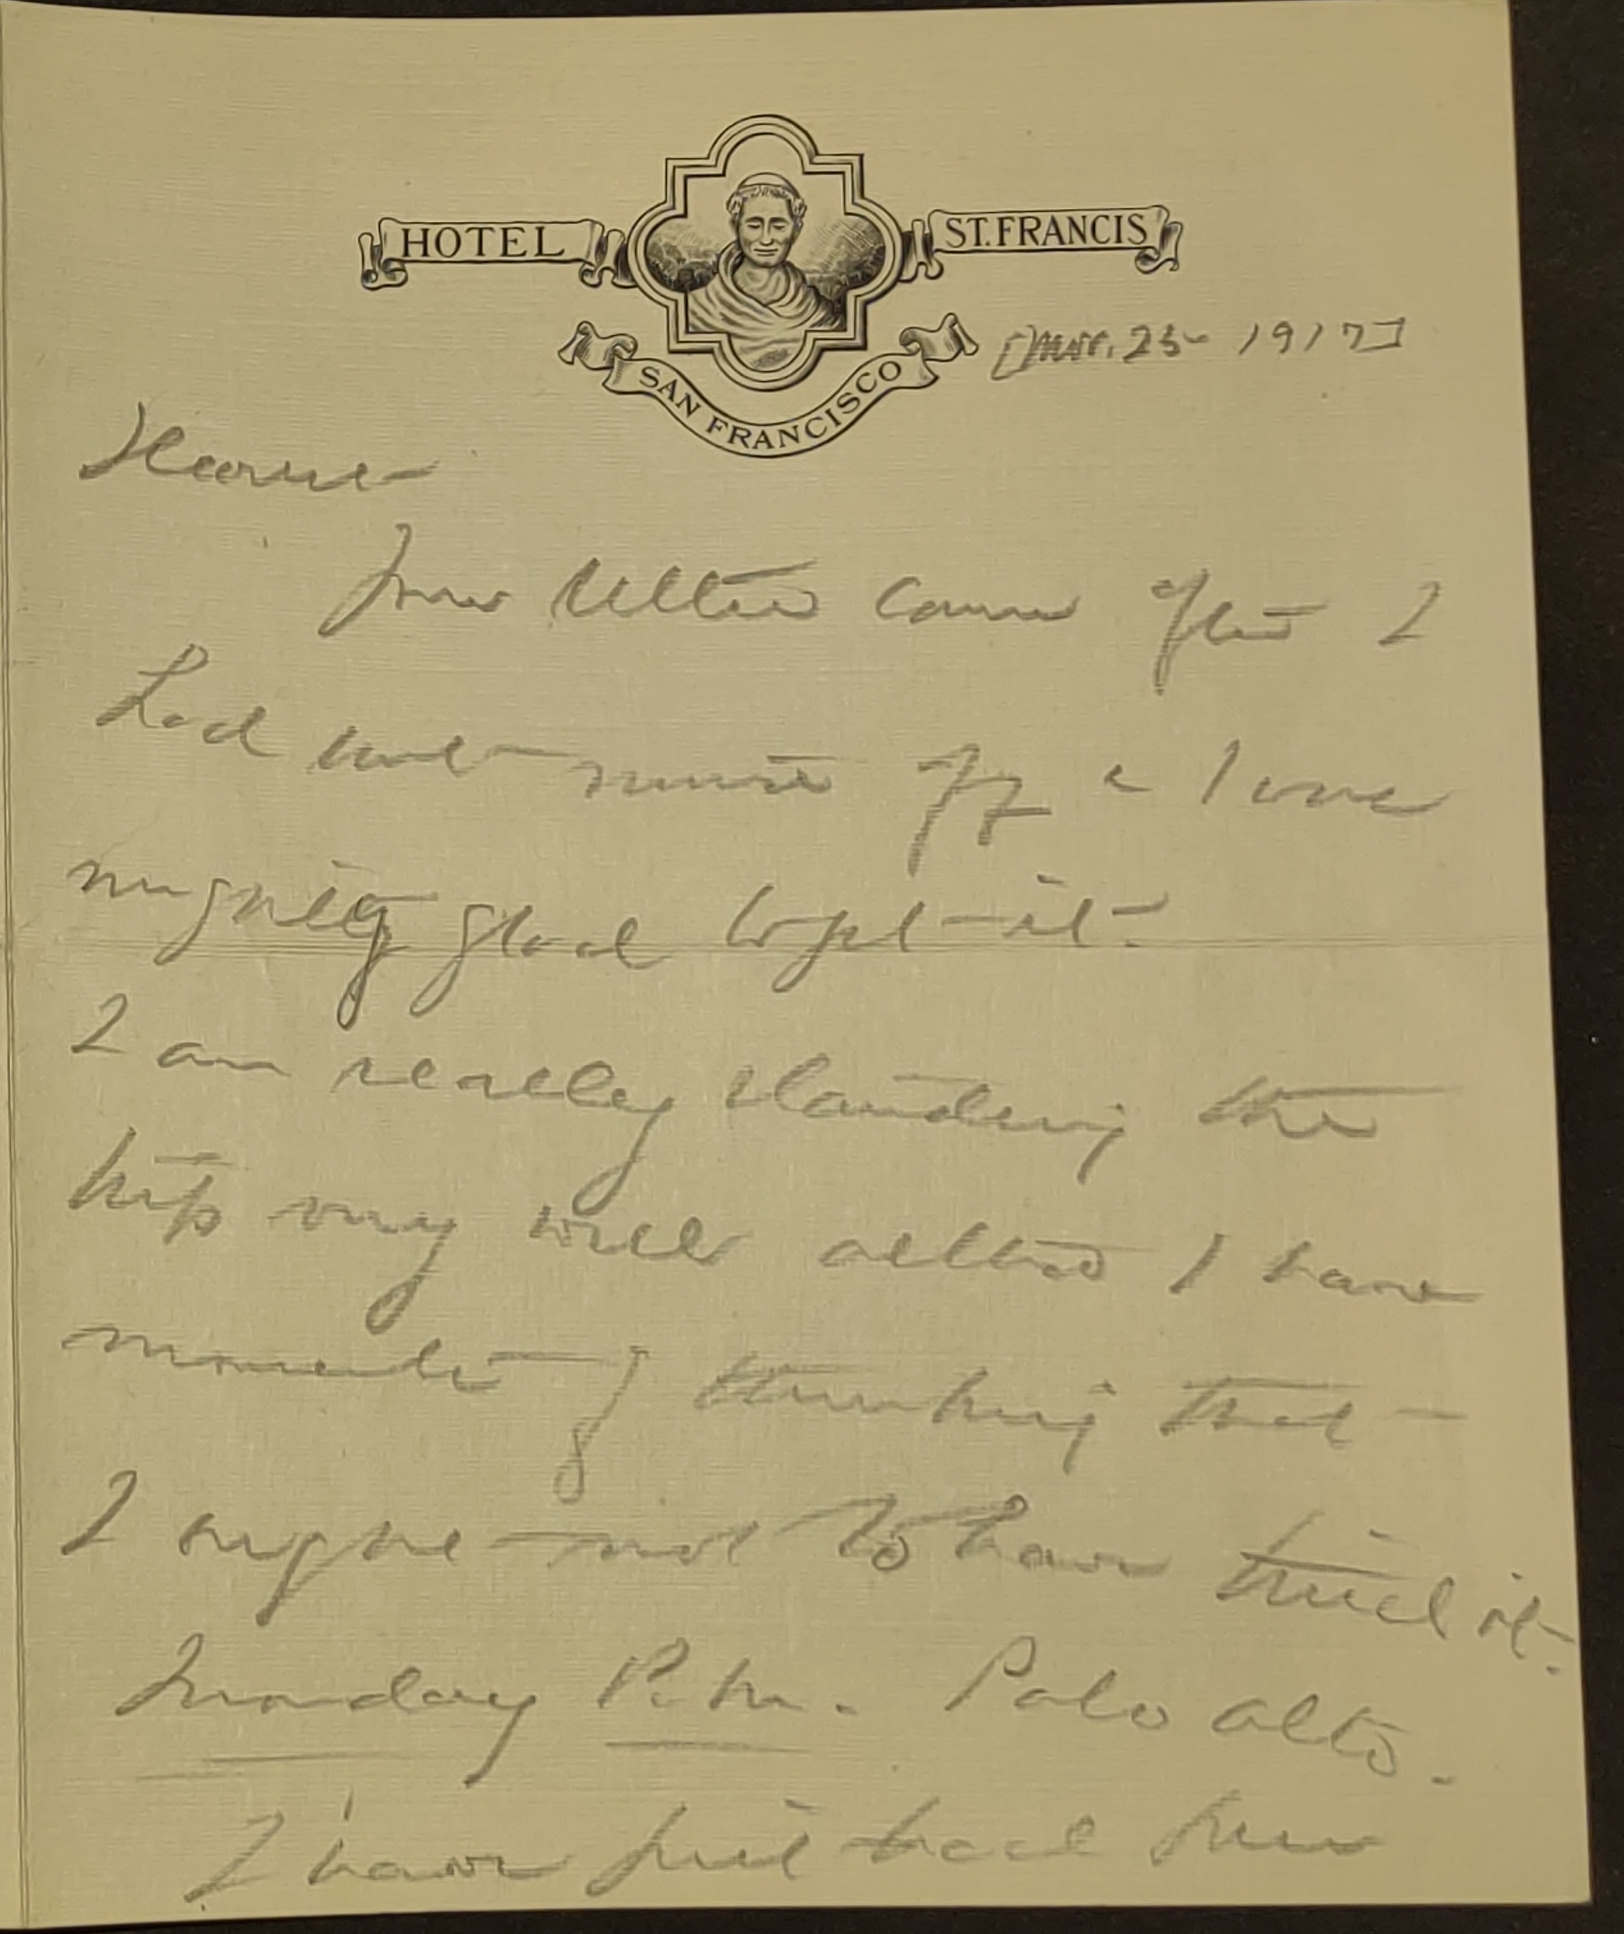 HOTEL ST. FRANCIS
SAN FRANCISCO
[Mar. 25- 1917]
Your letter came after I
had sent mine off &
mighty glad to get it.
I am really standing the
trip very well altho I have
moments of thinking that
I ought not to have tried it.
Monday P.M. Palo Alto.
I have just had